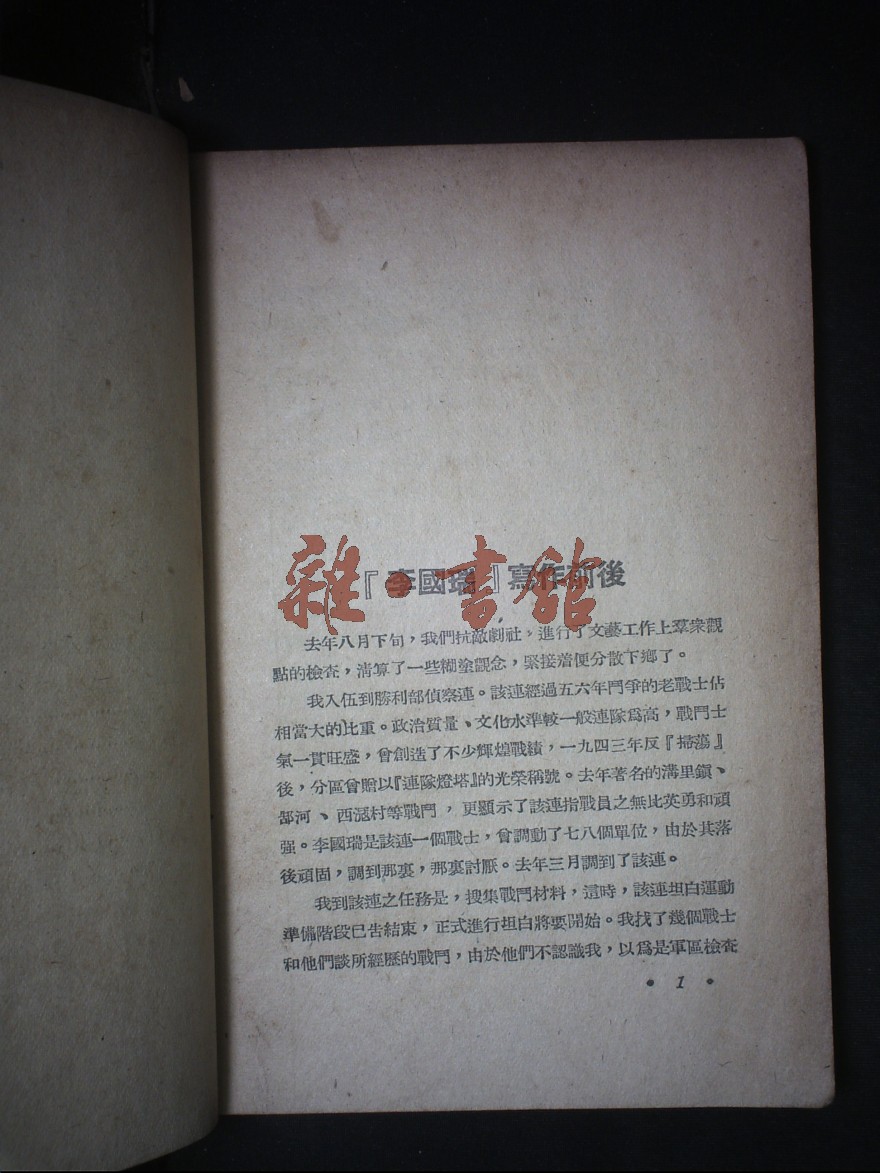 『李國瑞』寫作前後
雜·書館
去年八月下旬，我們抗敵劇社，進行了文藝工作上羣衆觀
點的檢查，淸算了一些糊塗觀念，緊接着便分散下鄉了。
我入伍到勝利部偵察連。該連經過五六年鬥爭的老戰士佔
相當大的比重。政治質量、文化水準較一般連隊爲高，戰鬥士
氣一貫旺盛，曾創造了不少輝煌戰績，一九四三年反『掃蕩』
後，分區曾贈以『連隊燈塔』的光榮稱號。去年著名的溝里鎭、
郜河、西𡨥村等戰鬥，更顯示了該連指戰員之無比英勇和頑
强。李國瑞是該連一個戰士，曾調動了七八個單位，由於其落
後頑固，調到那裏，那裏討厭。去年三月調到了該連。
我到該連之任務是，搜集戰鬥材料，這時，該連坦白運動
準備階段已吿結束，正式進行坦白將要開始。我找了幾個戰士
和他們談所經歷的戰鬥，由於他們不認識我，以爲是軍區檢查
• 1 •